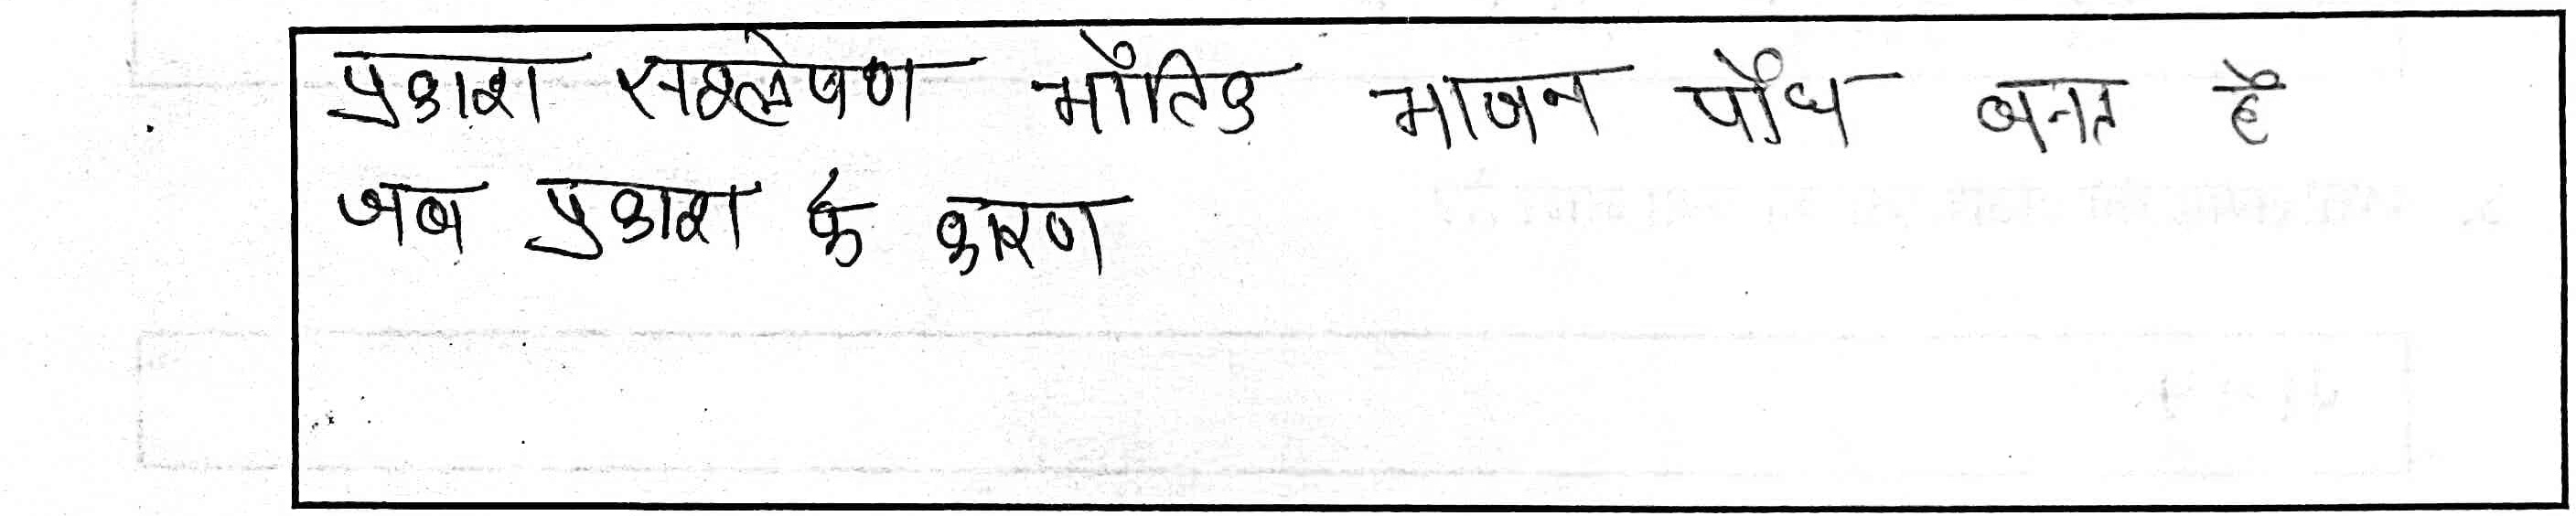 प्रकाश सश्लेषण भौतिक भाजन पौध बनत है
जब प्रकाश के कारण